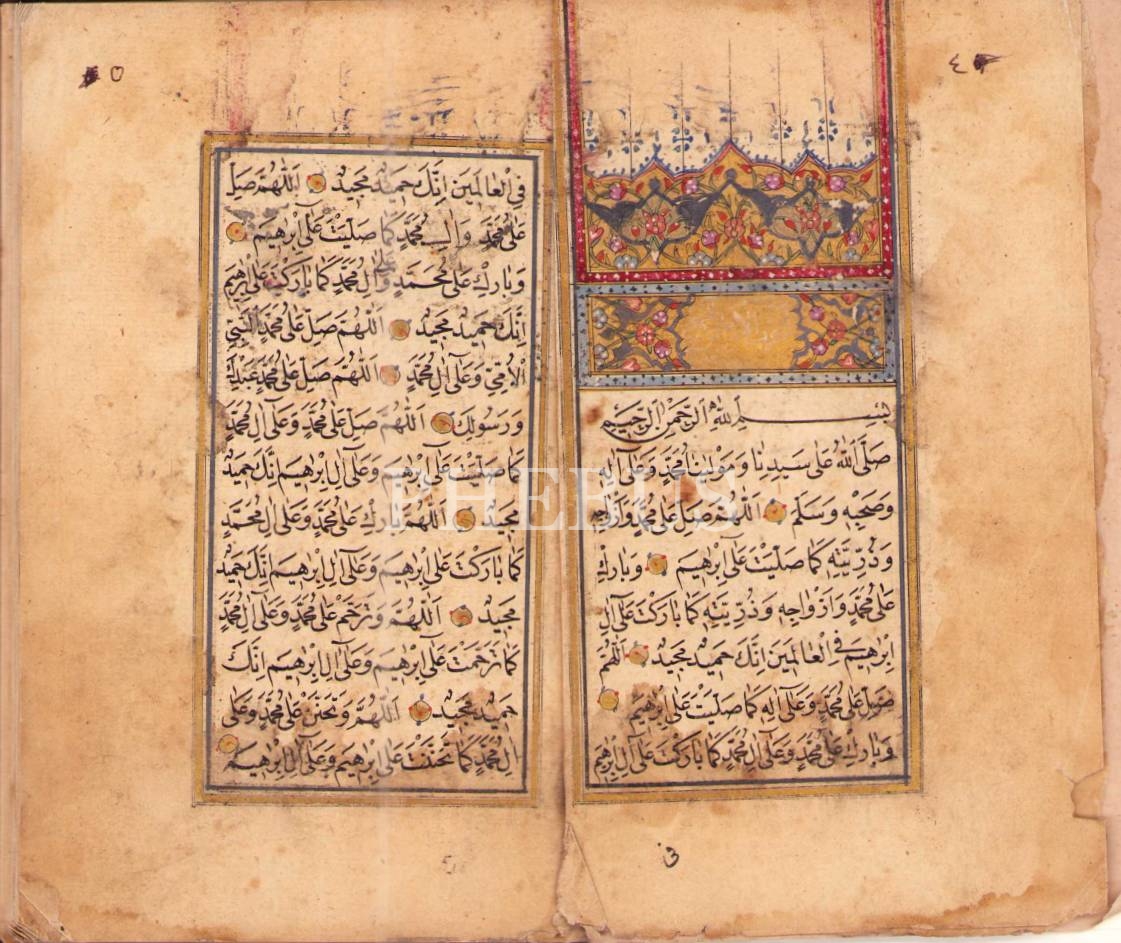 ٤
بسم الله الرحمن الرحيم
صَلَّى اللهُ عَلَى سَيِّدِنَا وَمَوْلَانَا مُحَمَّدٍ وَعَلَى آلِهِ
وَصَحْبِهِ وَسَلَّمَ اَللّٰهُمَّ صَلِّ عَلَى مُحَمَّدٍ وَاَزْوَاجِهِ
وَذُرِّيَّتِهِ كَمَا صَلَّيْتَ عَلَى اِبْرٰهِيمَ وَبَارِكْ
عَلَى مُحَمَّدٍ وَاَزْوَاجِهِ وَذُرِّيَّتِهِ كَمَا بَارَكْتَ عَلَى آلِ
اِبْرٰهِيمَ فِي الْعَالَمِينَ اِنَّكَ حَمِيدٌ مَجِيدٌ اَللّٰهُمَّ
صَلِّ عَلَى مُحَمَّدٍ وَعَلَى آلِهِ كَمَا صَلَّيْتَ عَلَى اِبْرٰهِيمَ
وَبَارِكْ عَلَى مُحَمَّدٍ وَعَلَى آلِ مُحَمَّدٍ كَمَا بَارَكْتَ عَلَى آلِ اِبْرٰهِيمَ
فى
٥
فِي الْعَالَمِينَ اِنَّكَ حَمِيدٌ مَجِيدٌ اَللّٰهُمَّ صَلِّ
عَلَى مُحَمَّدٍ وَآلِ مُحَمَّدٍ كَمَا صَلَّيْتَ عَلَى اِبْرٰهِيمَ
وَبَارِكْ عَلَى مُحَمَّدٍ وَآلِ مُحَمَّدٍ كَمَا بَارَكْتَ عَلَى اِبْرٰهِيمَ
اِنَّكَ حَمِيدٌ مَجِيدٌ اَللّٰهُمَّ صَلِّ عَلَى مُحَمَّدٍ النَّبِيِّ
الْاُمِّيِّ وَعَلَى آلِ مُحَمَّدٍ اَللّٰهُمَّ صَلِّ عَلَى مُحَمَّدٍ عَبْدِكَ
وَرَسُولِكَ اَللّٰهُمَّ صَلِّ عَلَى مُحَمَّدٍ وَعَلَى آلِ مُحَمَّدٍ
كَمَا صَلَّيْتَ عَلَى اِبْرٰهِيمَ وَعَلَى آلِ اِبْرٰهِيمَ اِنَّكَ حَمِيدٌ
مَجِيدٌ اَللّٰهُمَّ بَارِكْ عَلَى مُحَمَّدٍ وَعَلَى آلِ مُحَمَّدٍ
كَمَا بَارَكْتَ عَلَى اِبْرٰهِيمَ وَعَلَى آلِ اِبْرٰهِيمَ اِنَّكَ حَمِيدٌ
مَجِيدٌ اَللّٰهُمَّ وَتَرَحَّمْ عَلَى مُحَمَّدٍ وَعَلَى آلِ مُحَمَّدٍ
كَمَا تَرَحَّمْتَ عَلَى اِبْرٰهِيمَ وَعَلَى آلِ اِبْرٰهِيمَ اِنَّكَ
حَمِيدٌ مَجِيدٌ اَللّٰهُمَّ وَتَحَنَّنْ عَلَى مُحَمَّدٍ وَعَلَى
آلِ مُحَمَّدٍ كَمَا تَحَنَّنْتَ عَلَى اِبْرٰهِيمَ وَعَلَى آلِ اِبْرٰهِيمَ
PHEBUS